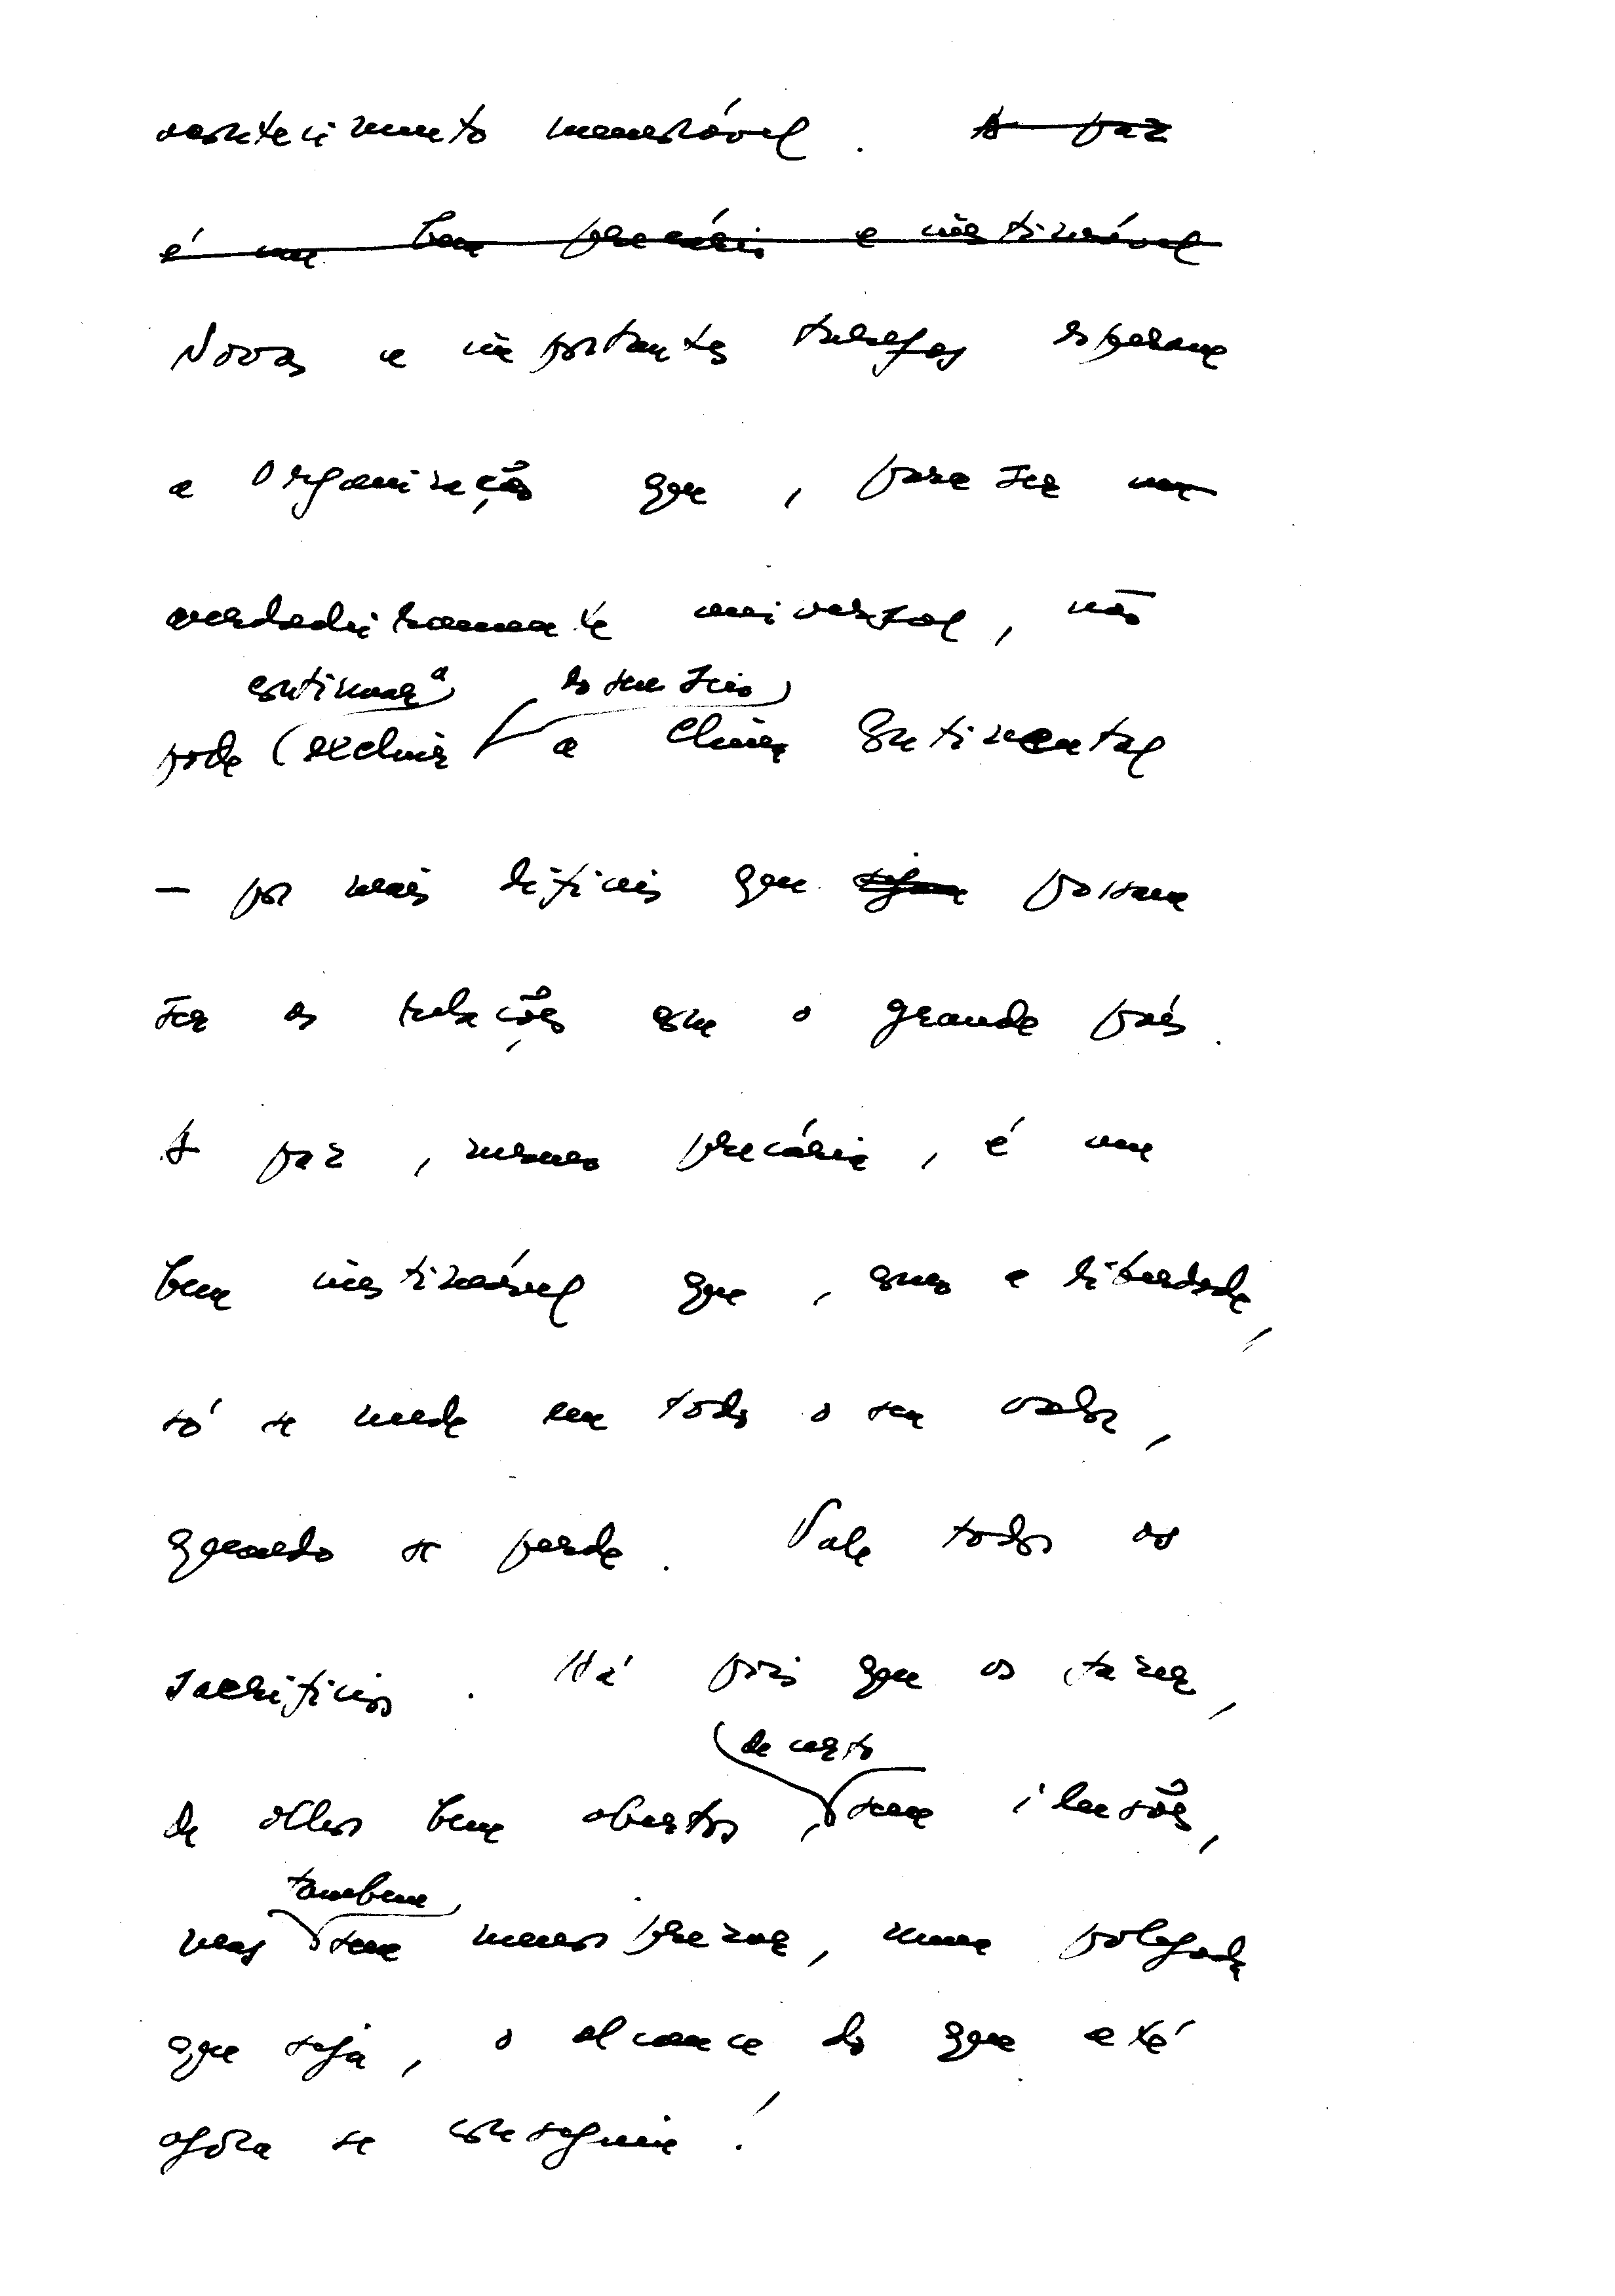 acontecimento memorável. A paz
é um bem precário e inestimável
Novas e importantes tarefas esperam
a Organização que, para ser um
verdadeiramente universal, não
continuar a do seu seio
pode (excluir a China Continental
— por mais difíceis que sejam possam
ser as relações com o grande país.
A paz, mesmo precária, é um
bem inestimável que, como a liberdade,
só se mede em todo o seu valor,
quando se perde. Vale todos os
sacrifícios. Há pois que os fazer,
de certo
de olhos bem abertos, sem ilusões,
tambem
mas sem menosprezar, numa polegada
que seja, o alcance do que até
agora se conseguiu!